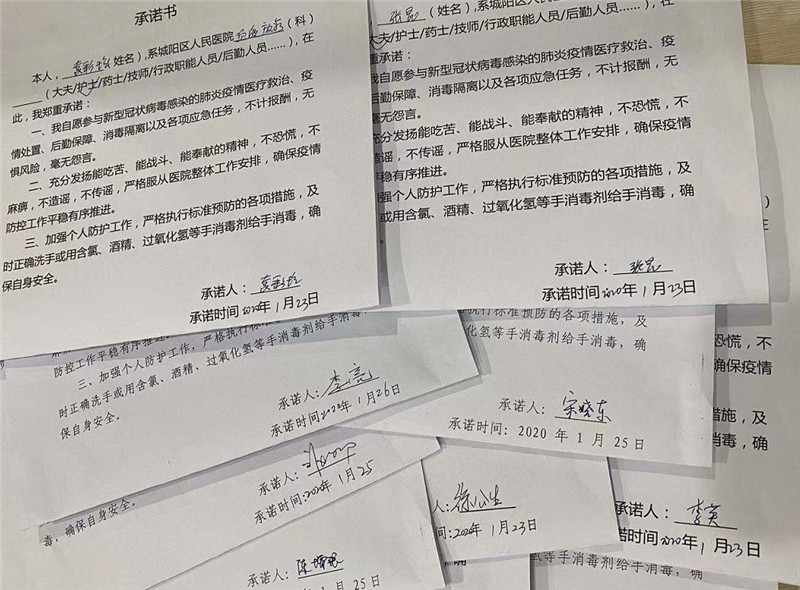 承诺书
本人，(姓名)，系城阳区人民医院(科)
(大夫/护士/药士/技师/行政职能人员/后勤人员……)，在
此，我郑重承诺：
一、我自愿参与新型冠状病毒感染的肺炎疫情医疗救治、疫
情处置、后勤保障、消毒隔离以及各项应急任务，不计报酬，无
惧风险，毫无怨言。
二、充分发扬能吃苦、能战斗、能奉献的精神，不恐慌，不
麻痹，不造谣，不传谣，严格服从医院整体工作安排，确保疫情
防控工作平稳有序推进。
三、加强个人防护工作，严格执行标准预防的各项措施，及
时正确洗手或用含氯、酒精、过氧化氢等手消毒剂给手消毒，确
保自身安全。
承诺人：
承诺时间2020年1月23日
张昆(姓名)，系城阳区人民医院
大夫/护士/药士/技师/行政职能人员/后勤人员……)，在
郑重承诺：
我自愿参与新型冠状病毒感染的肺炎疫情医疗救治、疫
后勤保障、消毒隔离以及各项应急任务，不计报酬，无
毫无怨言。
充分发扬能吃苦、能战斗、能奉献的精神，不恐慌，不
谣，不传谣，严格服从医院整体工作安排，确保疫情
平稳有序推进。
强个人防护工作，严格执行标准预防的各项措施，及
或用含氯、酒精、过氧化氢等手消毒剂给手消毒，确
承诺人：张昆
承诺时间2020年1月23日
防控工作平稳有序推进
三、加强个人防护工作，严格执行标准预防的各项措施，
时正确洗手或用含氯、酒精、过氧化氢等手消毒剂给手消毒，
保自身安全。
承诺人：李亮
承诺时间：2020年1月26日
执行标准预防的各项措施，及
氧化氢等手消毒剂给手消毒，确
承诺人：宋晓东
承诺时间：2020年1月25日
不恐慌，不
确保疫情
措施，及
毒，确
承诺人：李英
承诺时间2020年1月23日
毒，确保自身安全。
承诺人：
承诺时间：2020年1月25
人：徐公生
间：2020年1月23日
承诺人：
1月25日
氢等手消毒剂给手消毒，确